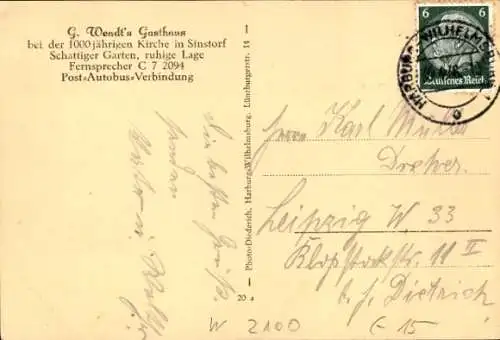 G. Wendt's Gasthaus
bei der 1000jährigen Kirche in Sinstorf
Schattiger Garten, ruhige Lage
Fernsprecher C 7 2094
Post-Autobus-Verbindung
Die besten Grüße
senden
Photo-Diederich, Harburg-Wilhelmsburg, Lüneburgerstr. 14
20 a
6 6
Deutsches Reich
HARBURG-WILHELMSBURG 1
Herrn Karl Müller
Dreher.
Leipzig W. 33
Klopstockstr. 11 II
b. J. Dietrich
W 2100
E 15